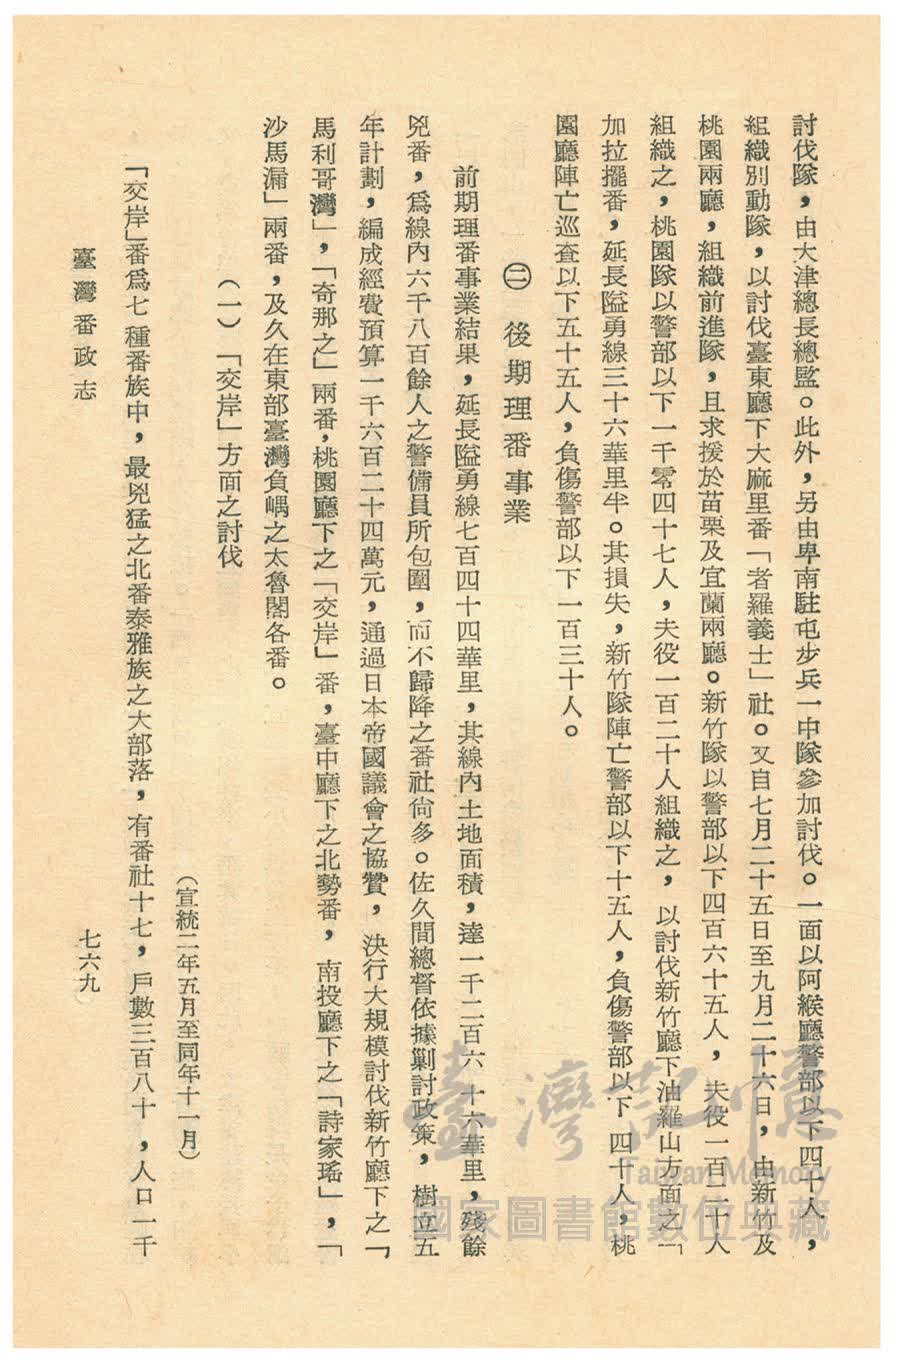 討伐隊，由大津總長總監。此外，另由卑南駐屯步兵一中隊參加討伐。一面以阿緱廳警部以下四十人，
組織別動隊，以討伐臺東廳下大麻里番「者羅義士」社。又自七月二十五日至九月二十六日，由新竹及
桃園兩廳，組織前進隊，且求援於苗栗及宜蘭兩廳。新竹隊以警部以下四百六十五人，夫役一百二十人
組織之，桃園隊以警部以下一千零四十七人，夫役一百二十人組織之，以討伐新竹廳下油羅山方面之「
加拉擺番，延長隘勇線三十六華里半。其損失，新竹隊陣亡警部以下十五人，負傷警部以下四十人，桃
園廳陣亡巡查以下五十五人，負傷警部以下一百三十人。
㊁　後期理番事業
前期理番事業結果，延長隘勇線七百四十四華里，其線內土地面積，達一千二百六十六華里，殘餘
兇番，爲線內六千八百餘人之警備員所包圍，而不歸降之番社尙多。佐久間總督依據剿討政策，樹立五
年計劃，編成經費預算一千六百二十四萬元，通過日本帝國議會之協贊，決行大規模討伐新竹廳下之「
馬利哥灣」，「奇那之」兩番，桃園廳下之「交岸」番，臺中廳下之北勢番，南投廳下之「詩家瑤」，「
沙馬漏」兩番，及久在東部臺灣負嵎之太魯閣各番。
（一）「交岸」方面之討伐
（宣統二年五月至同年十一月）
「交岸」番爲七種番族中，最兇猛之北番泰雅族之大部落，有番社十七，戶數三百八十，人口一千
臺灣番政志
七六九
臺灣記憶
Taiwan Memory
國家圖書館數位典藏